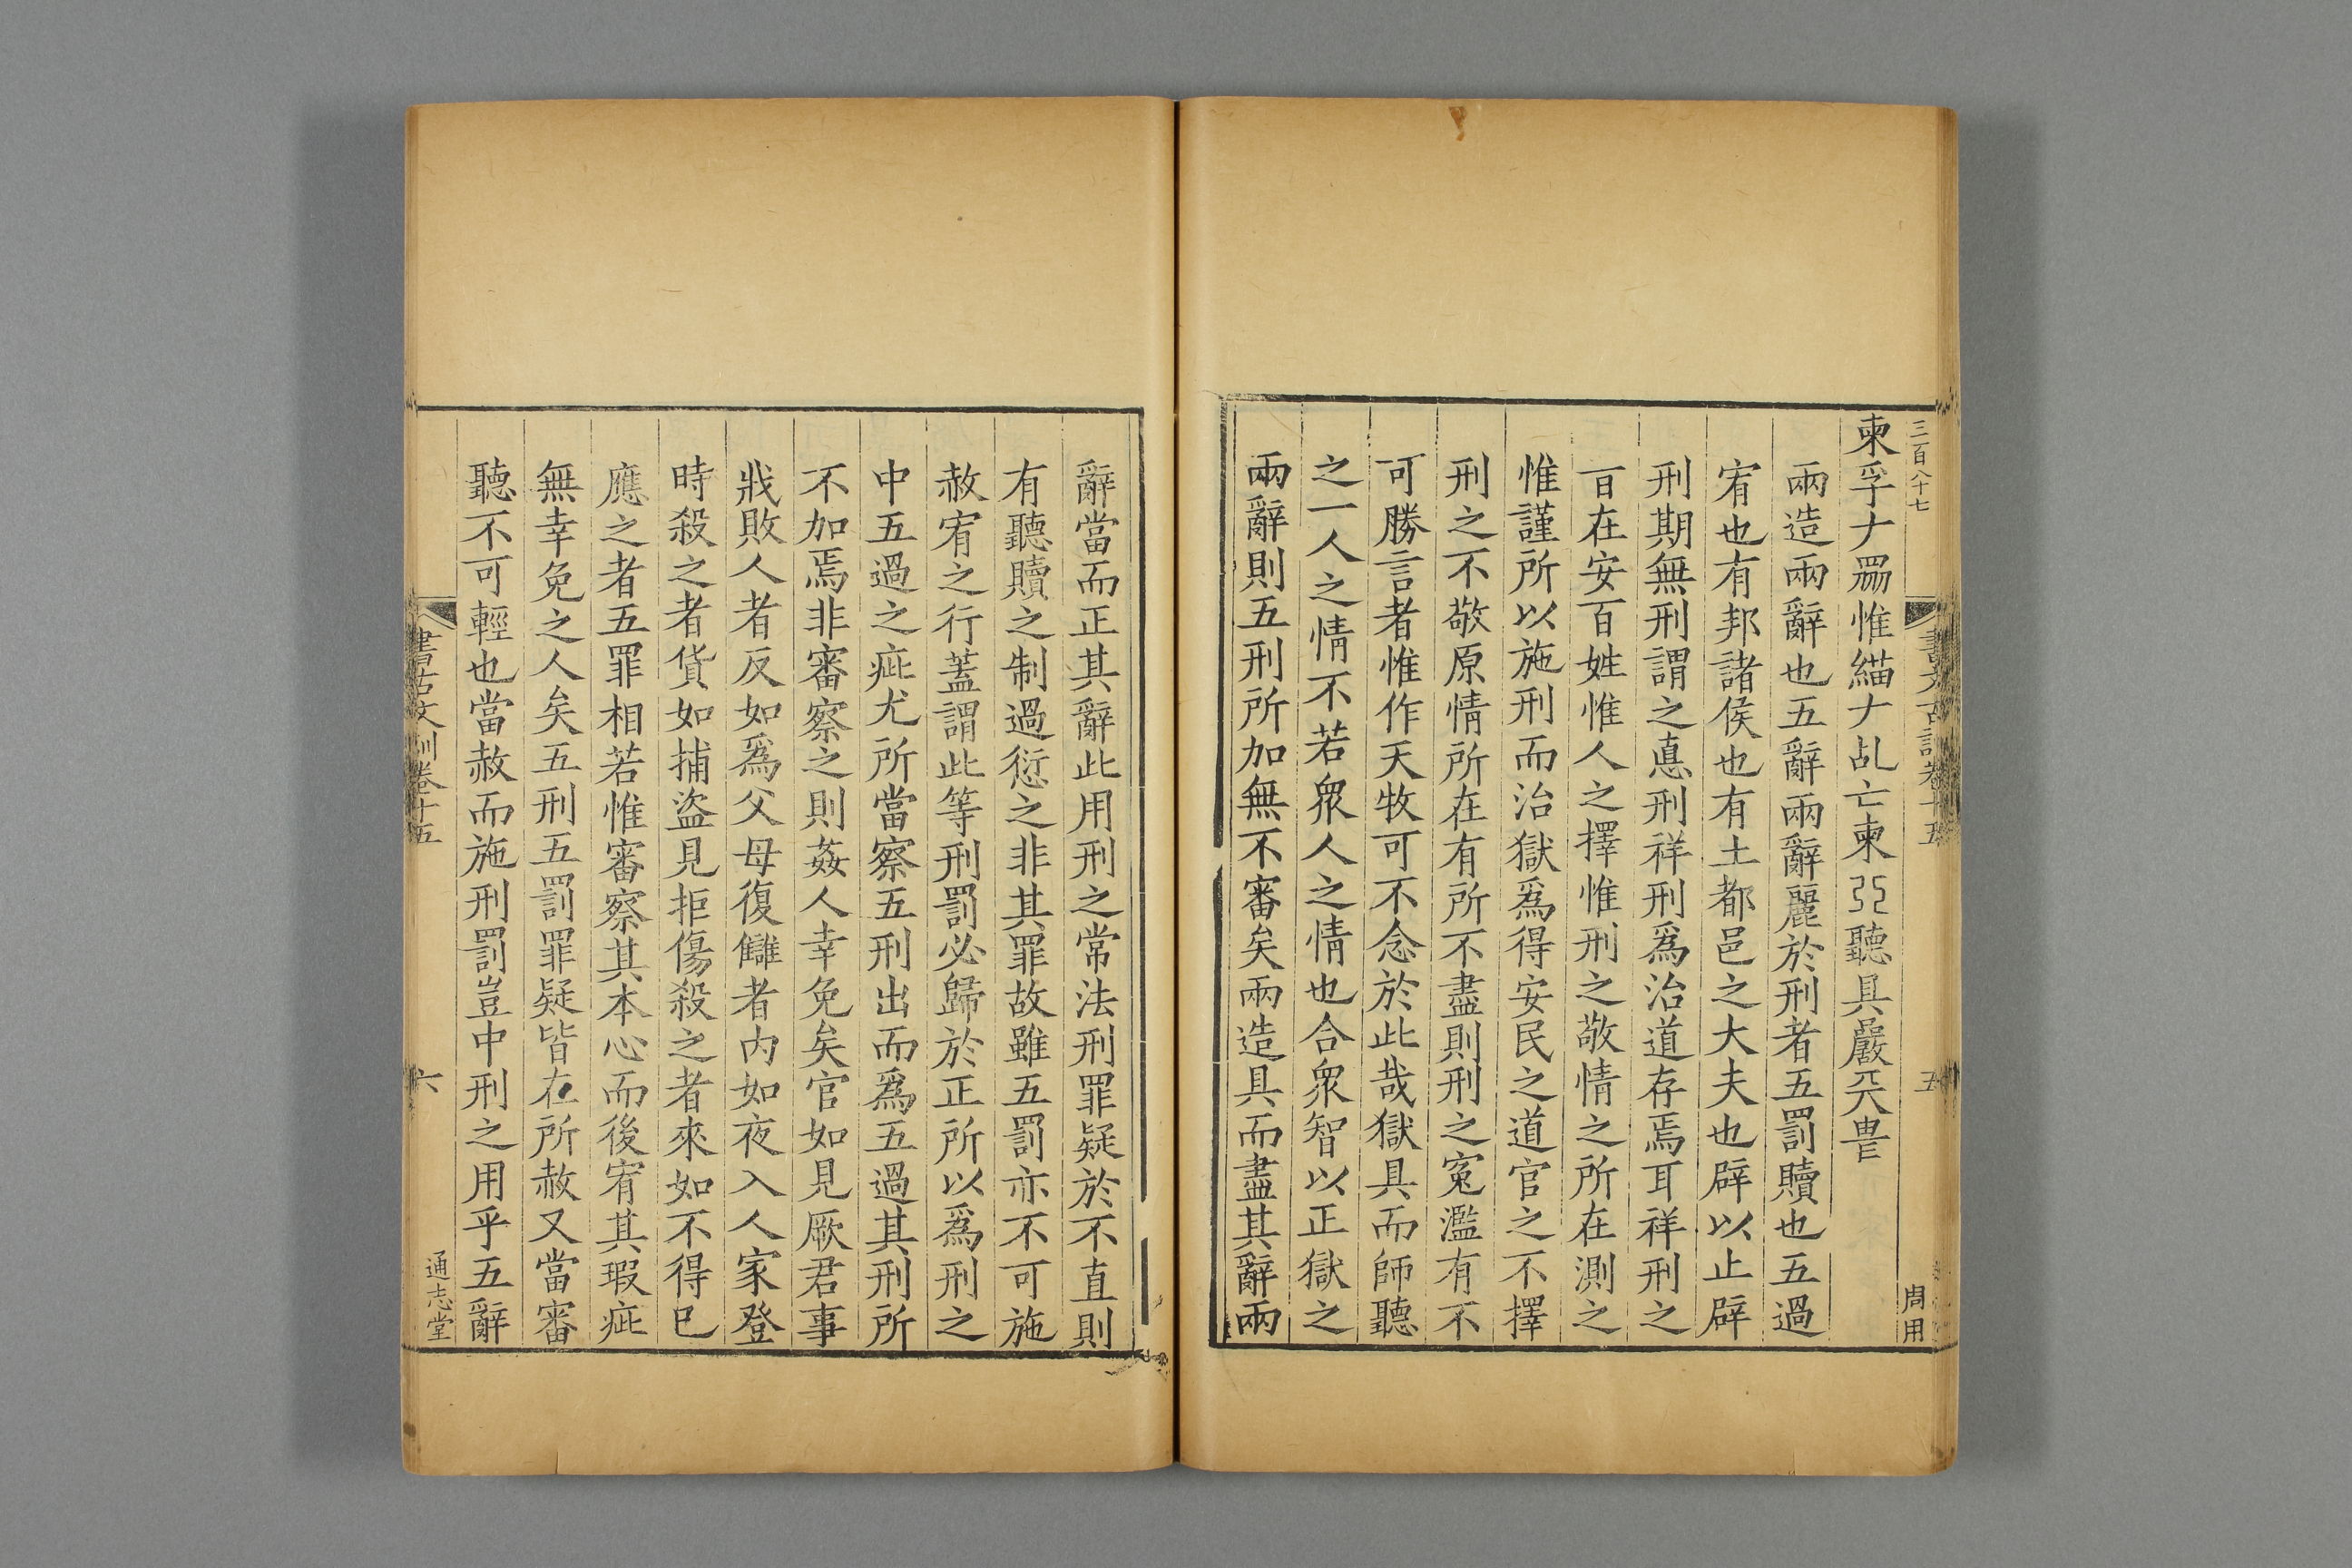 三百八十七
柬孚ナ𠱾惟緢ナ乩亡柬𢎤聽具嚴兲畏
兩造兩辭也五辭兩辭麗於刑者五罰贖也五過
宥也有邦諸侯也有土都邑之大夫也辟以止辟
刑期無刑謂之悳刑祥刑爲治道存焉耳祥刑之
百在安百姓惟人之擇惟刑之敬情之所在測之
惟謹所以施刑而治獄爲得安民之道官之不擇
刑之不敬原情所在有所不盡則刑之寃濫有不
可勝言者惟作天牧可不念於此哉獄具而師聽
之一人之情不若衆人之情也合衆智以正獄之
兩辭則五刑所加無不審矣兩造具而盡其辭兩
書古文訓卷十五
五
周用
辭當而正其辭此用刑之常法刑罪疑於不直則
有聽贖之制過愆之非其罪故雖五罰亦不可施
赦宥之行蓋謂此等刑罰必歸於正所以爲刑之
中五過之疵尤所當察五刑出而爲五過其刑所
不加焉非審察之則姦人幸免矣官如見厥君事
戕敗人者反如爲父母復讎者内如夜入人家登
時殺之者貨如捕盜見拒傷殺之者來如不得已
應之者五罪相若惟審察其本心而後宥其瑕疵
無幸免之人矣五刑五罰罪疑皆在所赦又當審
聽不可輕也當赦而施刑罰豈中刑之用乎五辭
書古文訓卷十五
六
通志堂